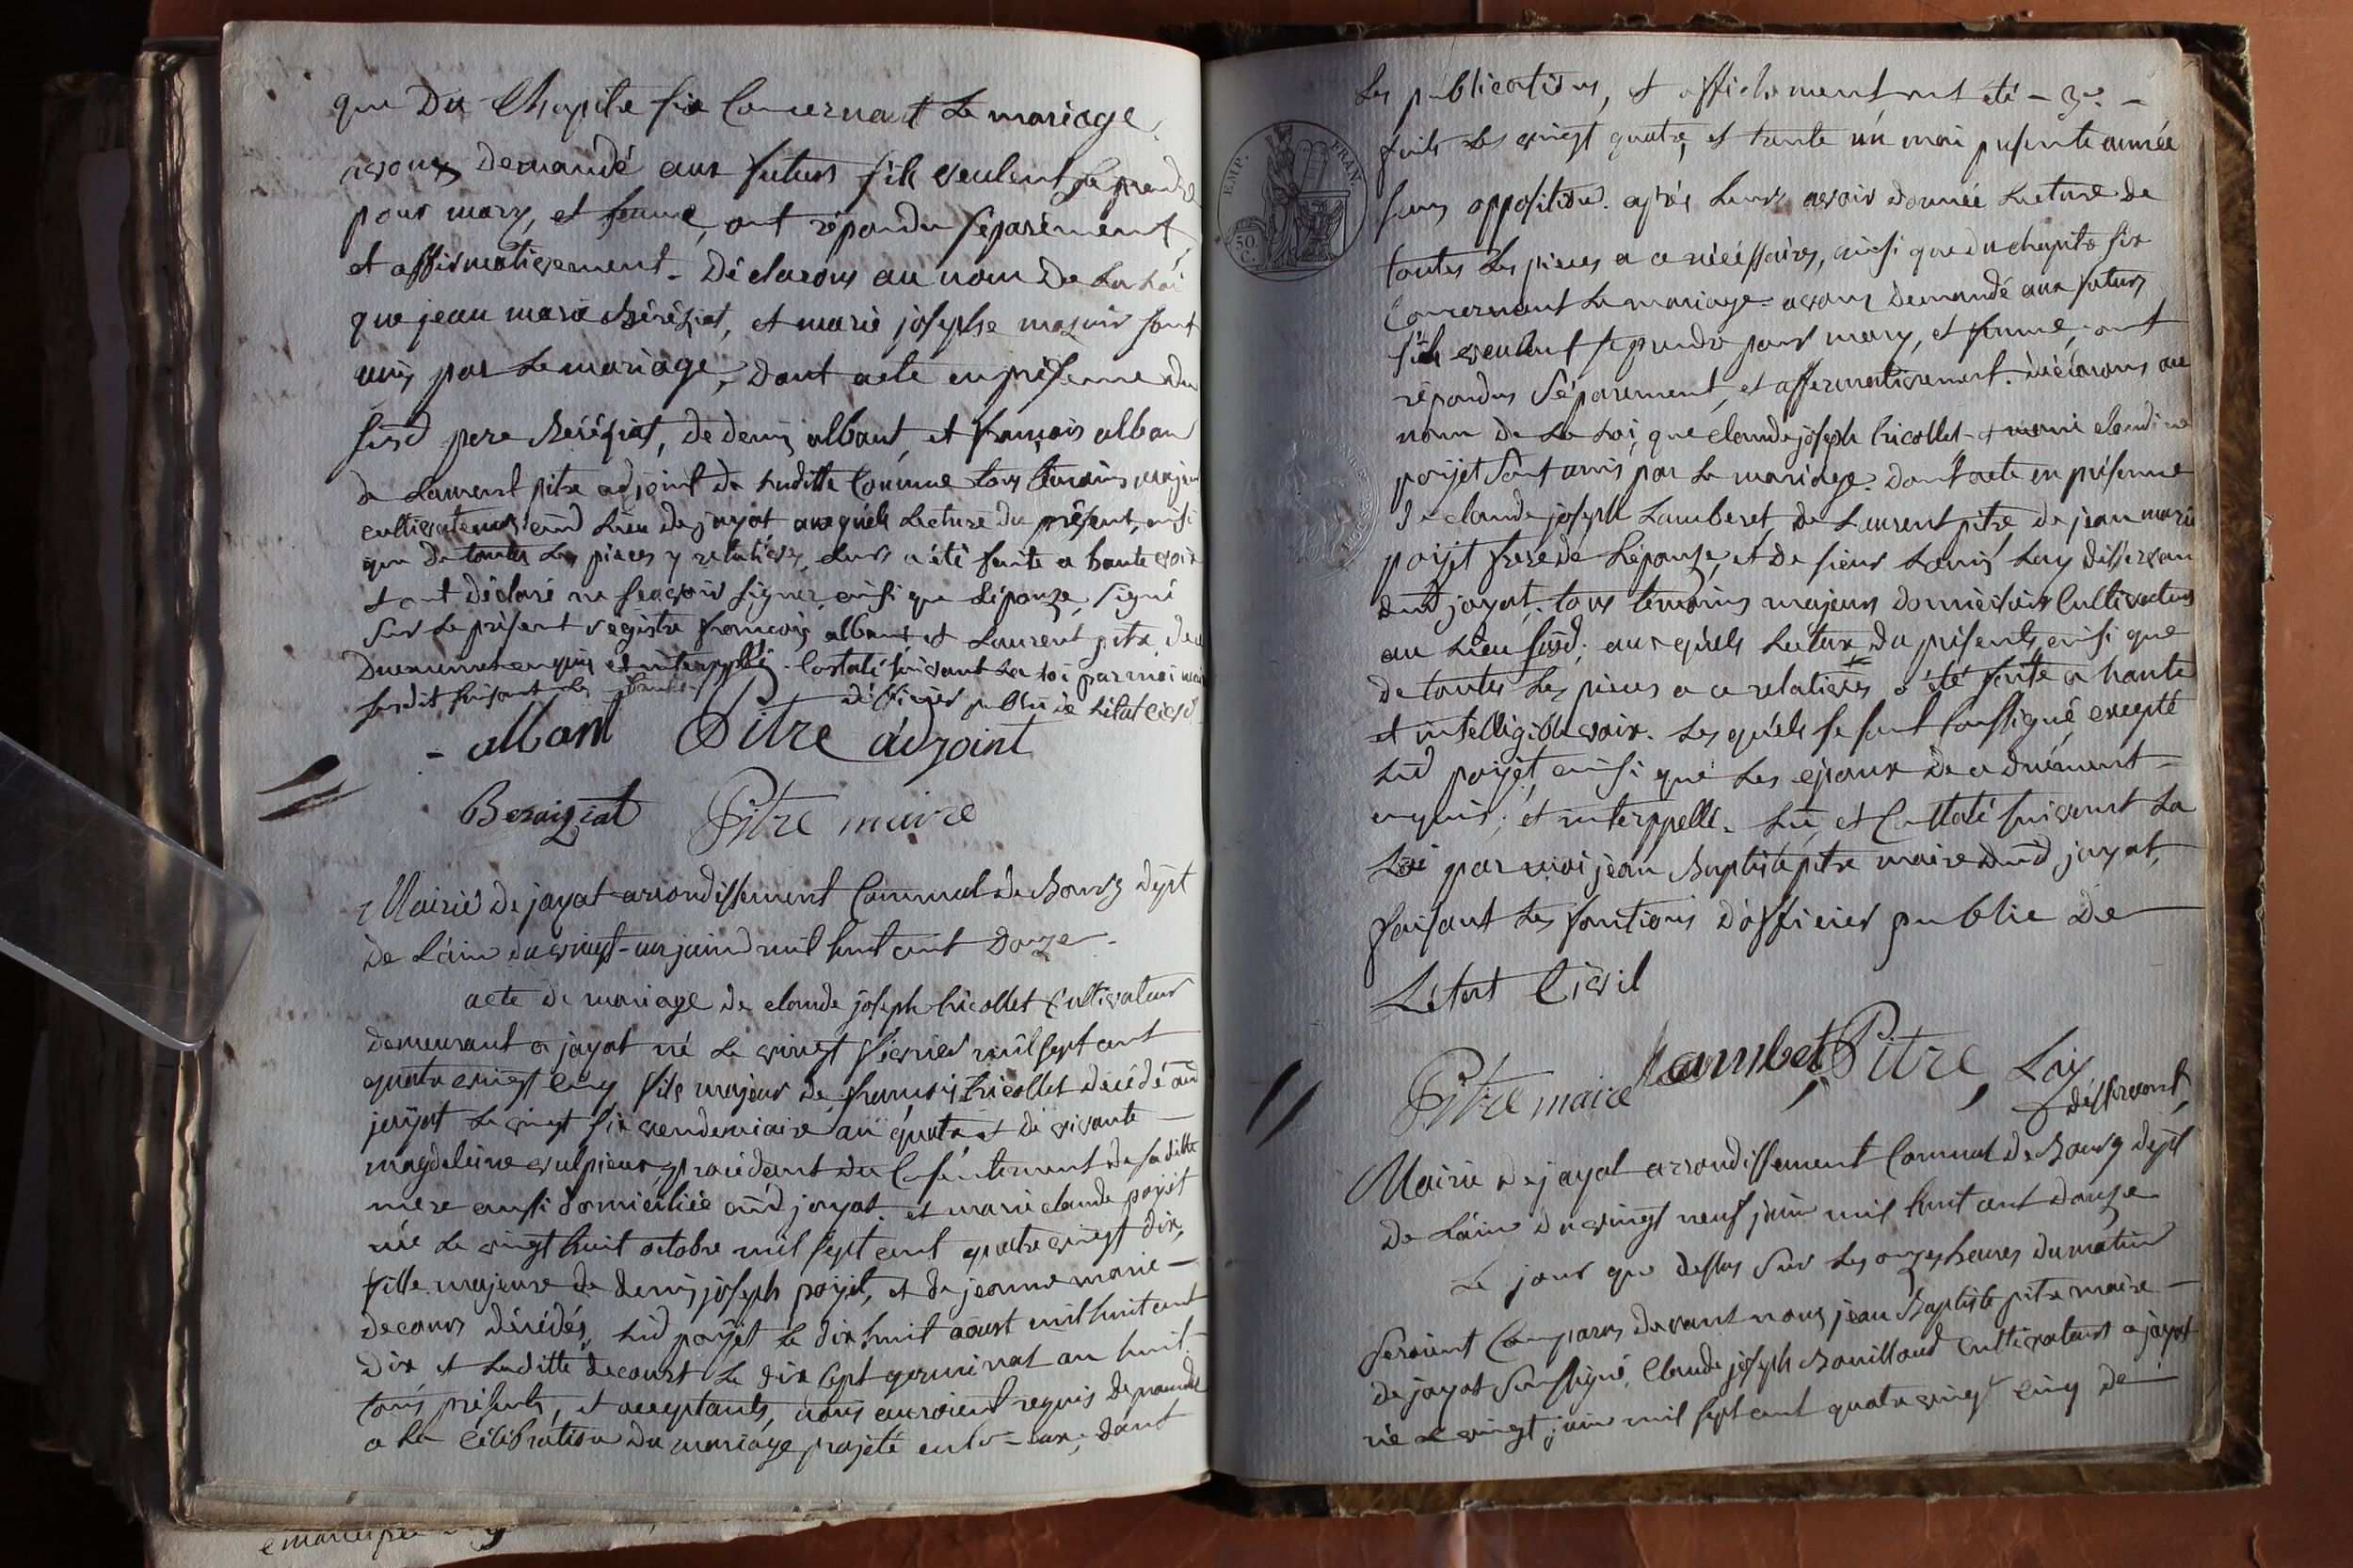 que du Chapitre six Concernant Le mariage.
avons demandé aux futurs s'ils veulent se prendre
pour mary, et femme, ont répondu séparément,
et affirmativement. Déclarons au nom de La Loi
que jean marie Béréziat, et marie josephe mazuir sont
unis par Le mariage, dont acte en présence du
susd pere Béréziat, de denis albant, et françois alban
de Laurent pitre adjoint de Luditte Commune tous témoins majeurs
cultivateurs aud Lieu de jayat auxquels Lecture du présent, ainsi
que de toutes Les pièces y relatives, Leurs a été faite a haute voix
et ont déclaré ne scavoir signer, ainsi que L'épouze, signé
sur Le présent registre françois albant et Laurent pitre, de ce
Duemment enquis et interppellé. Constaté suivant La Loi par moi maire
susdit faisant les fonctions d'officier public de L'état civil
- albant Pitre adjoint
Beraiziat Pitre maire
Mairie de jayat arrondissement Communal de Bourg dept
de L'ain du vingt-un juin mil huit cent Douze
acte de mariage de claude joseph tricollet Cultivateur
demeurant a jayat né Le vingt février mil sept cent
quatre vingt cinq fils majeur de françois tricollet décédé aud
jayat Le vingt six vendemiaire an quatre et de vivante
magdeleine vulpieux, procédant du Consentement de saditte
mere aussi domiciliée aud jayat. et marie claude poyit
née Le vingt huit octobre mil sept cent quatre vingt dix,
fille majeure de denis joseph poyit, et de jeanne marie
decours décédés, Lud poyit Le dix huit aoust mil huit cent
dix et Laditte decourt Le dix sept germinal an huit.
tous présents, et acceptants, nous auroient requis de proceder
a La célébration du mariage projeté entr-eux, dont
Les publications, et affichement ont été
faits Les vingt quatre, et trente un mai présente année
sans opposition. après Leurs avoir donnée Lecture de
toutes Les pieces a ce nécéssaires, ainsi que du chapitre six
Concernant Le mariage. avons demandé aux futurs
s'ils veulent se prendre pour mary, et femme, ont
répondus séparement, et affermativement. déclarons au
nom de La Loi, que claude joseph tricollet et marie claudine
poyjet sont unis par Le mariage. Dont acte en présence
De claude joseph Lamberet, de Laurent pitre, de jean marie
poyjet frere de L'épouze, et de sieur Louis Loy desservant
dud jayat, tous témoins majeurs domiciliés Cultivateurs
au Lieu susd. auxquels Lecture du présents ainsi que
de toutes Les pieces a ce relatives, a été faite a haute
et intelligible voix. Les quels se sont soussigné, excepté
Lud poyjet, ainsi que Les epoux de ce duement
enquis, et interppellé. Lu, et Constaté suivant La
Loi par moi jean Baptiste pitre maire dud jayat,
faisant Les fontions d'officier public de
L'état Civil
Pitre maire Lamberet, Pitre, Loy
desservant,
Mairie de jayat arrondissement Communal de Bourg dept
de L'ain du vingt neuf juin mil huit cent douze
Le jour que dessus sur Les onzes heures du matin
seroient Comparus devant nous jean Baptiste pitre maire
de jayat soussigné, Claude joseph Bouilloud Cultivateur a jayat
né Le vingt juin mil sept cent quatre vingt cinq de
EMP. FRAN.
50.
C.